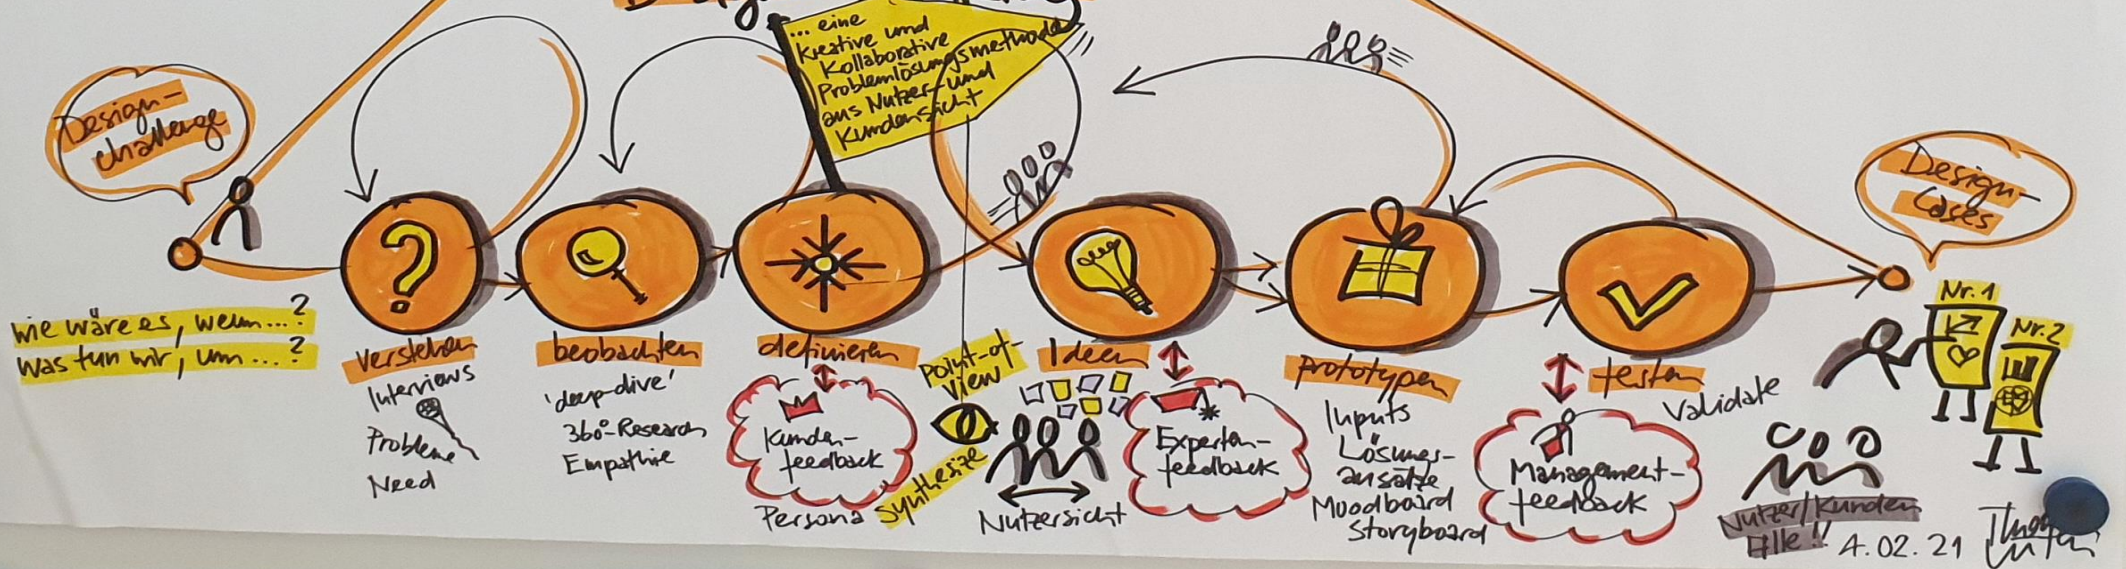 ... eine
kreative und
kollaborative
Problemlösungsmethode
aus Nutzer- und
Kundensicht
Design-
challenge
wie wäre es, wenn...?
was tun wir, um...?
verstehen
Interviews
Probleme
Need
beobachten
'deep-dive'
360°-Research
Empathie
definieren
Kunden-
feedback
Persona
Point-of-
view
Synthesize
Ideen
Nutzersicht
Experten-
feedback
prototypen
Inputs
Lösungs-
ansätze
Moodboard
Storyboard
testen
Validate
Management-
feedback
Design-
Cases
Nr.1
Nr.2
Nutzer/Kunden
Alle!!
4.02.21